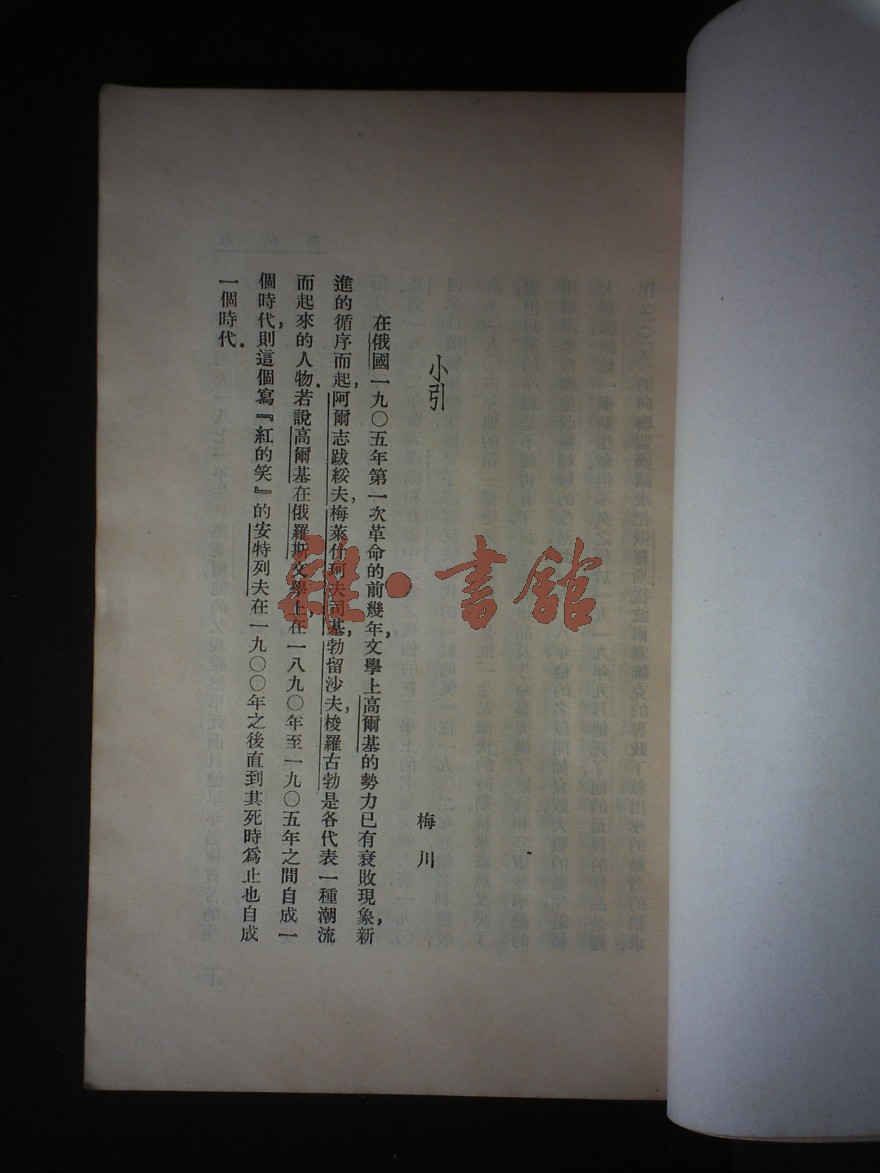 小引
梅川
在俄國一九〇五年第一次革命的前幾年，文學上高爾基的勢力已有衰敗現象，新
進的循序而起，阿爾志跋綏夫，梅萊什珂夫司基，勃留沙夫，梭羅古勃是各代表一種潮流
而起來的人物。若說高爾基在俄羅斯文學上，在一八九〇年至一九〇五年之間自成一
個時代，則這個寫『紅的笑』的安特列夫在一九〇〇年之後直到其死時爲止也自成
一個時代。
雜·書館